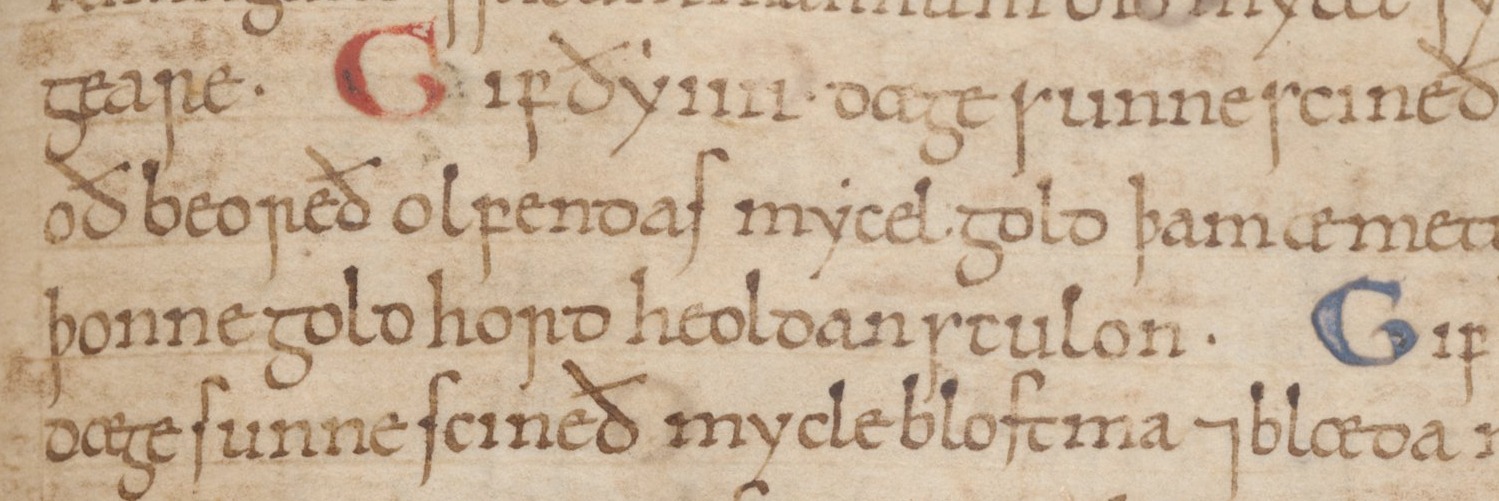 geare· Gif ðẏ iiii· dæge sunne scineð
oð beoreð olfendas mẏcel gold þam æmett
þonne gold hord heoldan stulon· Gif
dæge sunne scineð mycle blostma ⁊ blæda